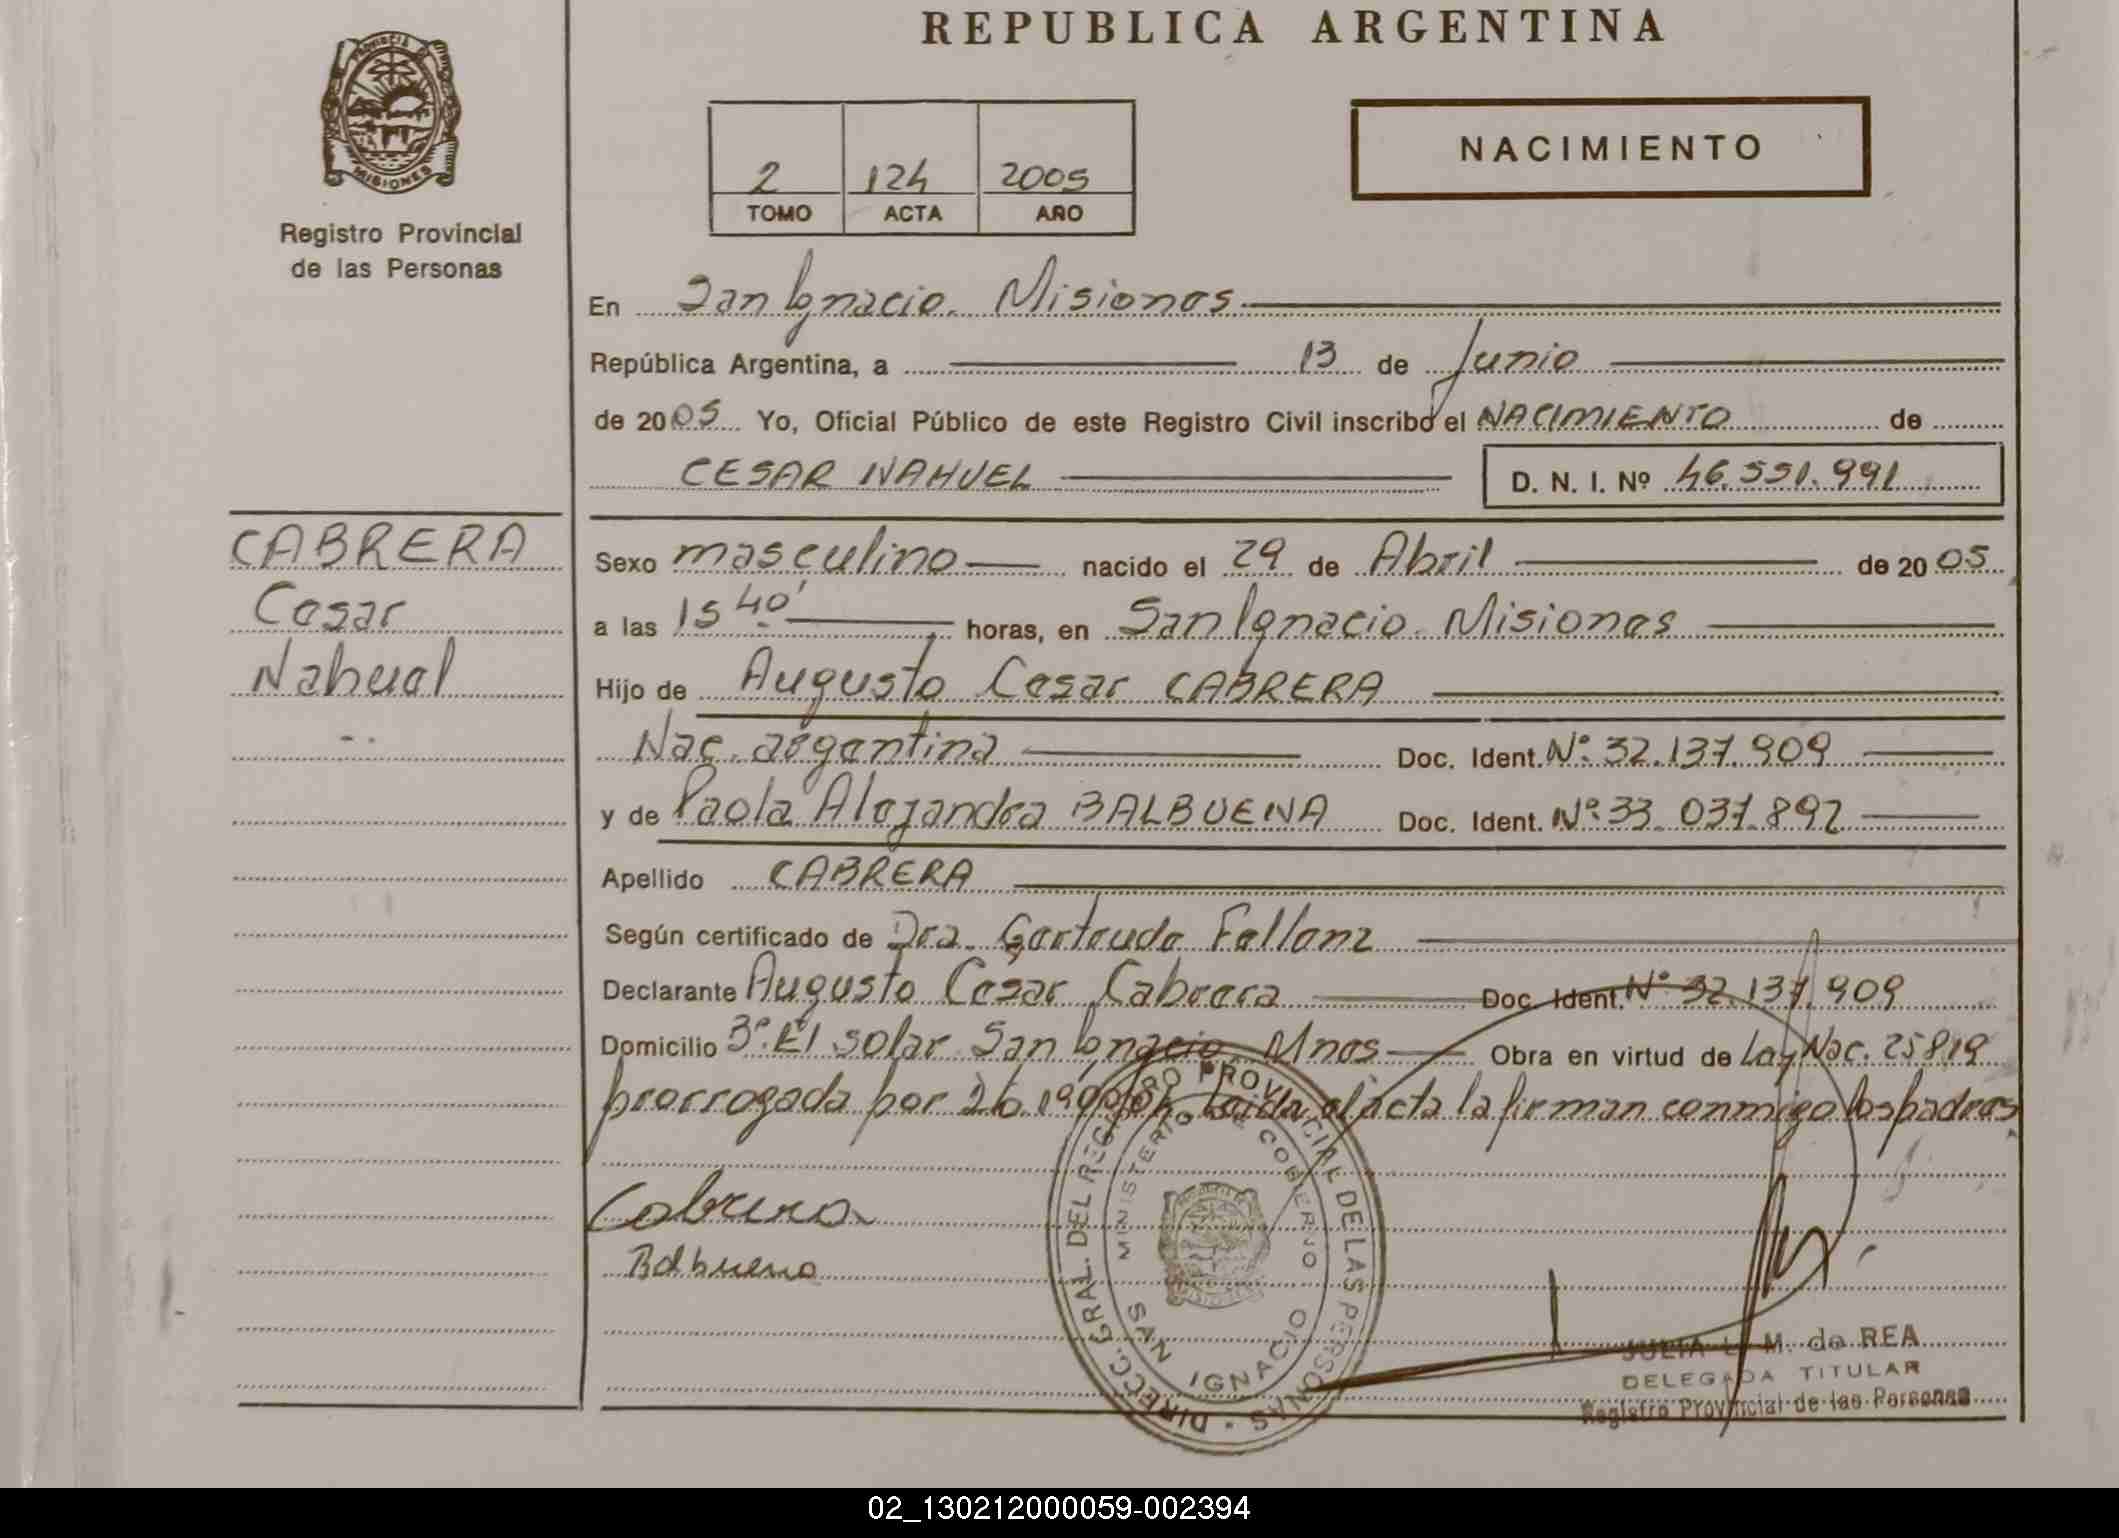 REPUBLICA ARGENTINA
PROVINCIA DE
MISIONES
Registro Provincial
de las Personas
2 124 2005
TOMO ACTA AÑO
NACIMIENTO
En San Ignacio. Misiones
República Argentina, a 13 de Junio
de 2005 Yo, Oficial Público de este Registro Civil inscribo el NACIMIENTO de
CESAR NAHUEL D. N. I. Nº 46.551.991
CABRERA
Cesar
Nahuel
Sexo masculino nacido el 29 de Abril de 2005
a las 15 40' horas, en San Ignacio. Misiones
Hijo de Augusto Cesar CABRERA
Nac. argentina Doc. Ident. Nº 32.137.909
y de Paola Alejandra BALBUENA Doc. Ident. Nº 33.037.892
Apellido CABRERA
Según certificado de Dra. Gertrudo Fallanz
Declarante Augusto Cesar Cabrera Doc. Ident. Nº 32.137.909
Domicilio Bº El solar San Ignacio Mnes Obra en virtud de Ley Nac. 25819
prorrogada por Leida el acta la firman conmigo los padres
Cabrera
Balbuena
DIRECC. GRAL. DEL REGISTRO PROVINCIAL DE LAS PERSONAS
MINISTERIO DE GOBIERNO
SAN IGNACIO
JULIA L. M. de REA
DELEGADA TITULAR
Registro Provincial de las Personas
02_130212000059-002394